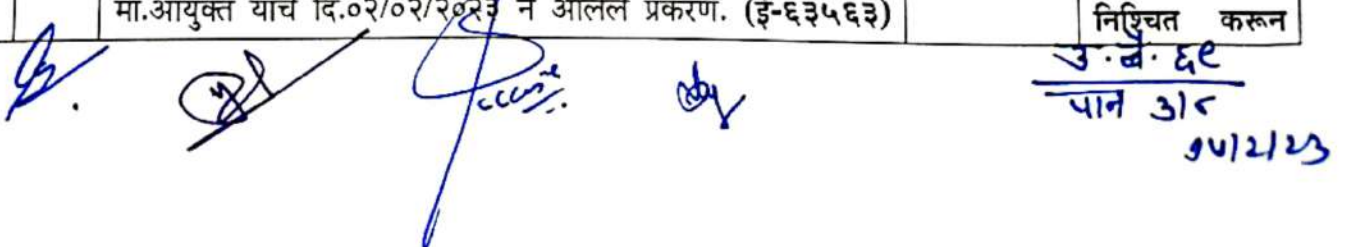 मा.आयुक्त यांचे दि.०२/०२/२०२३ ने आलेले प्रकरण. (ई-६३५६३)
निश्चित करून
पान ३/८
१५/२/२३